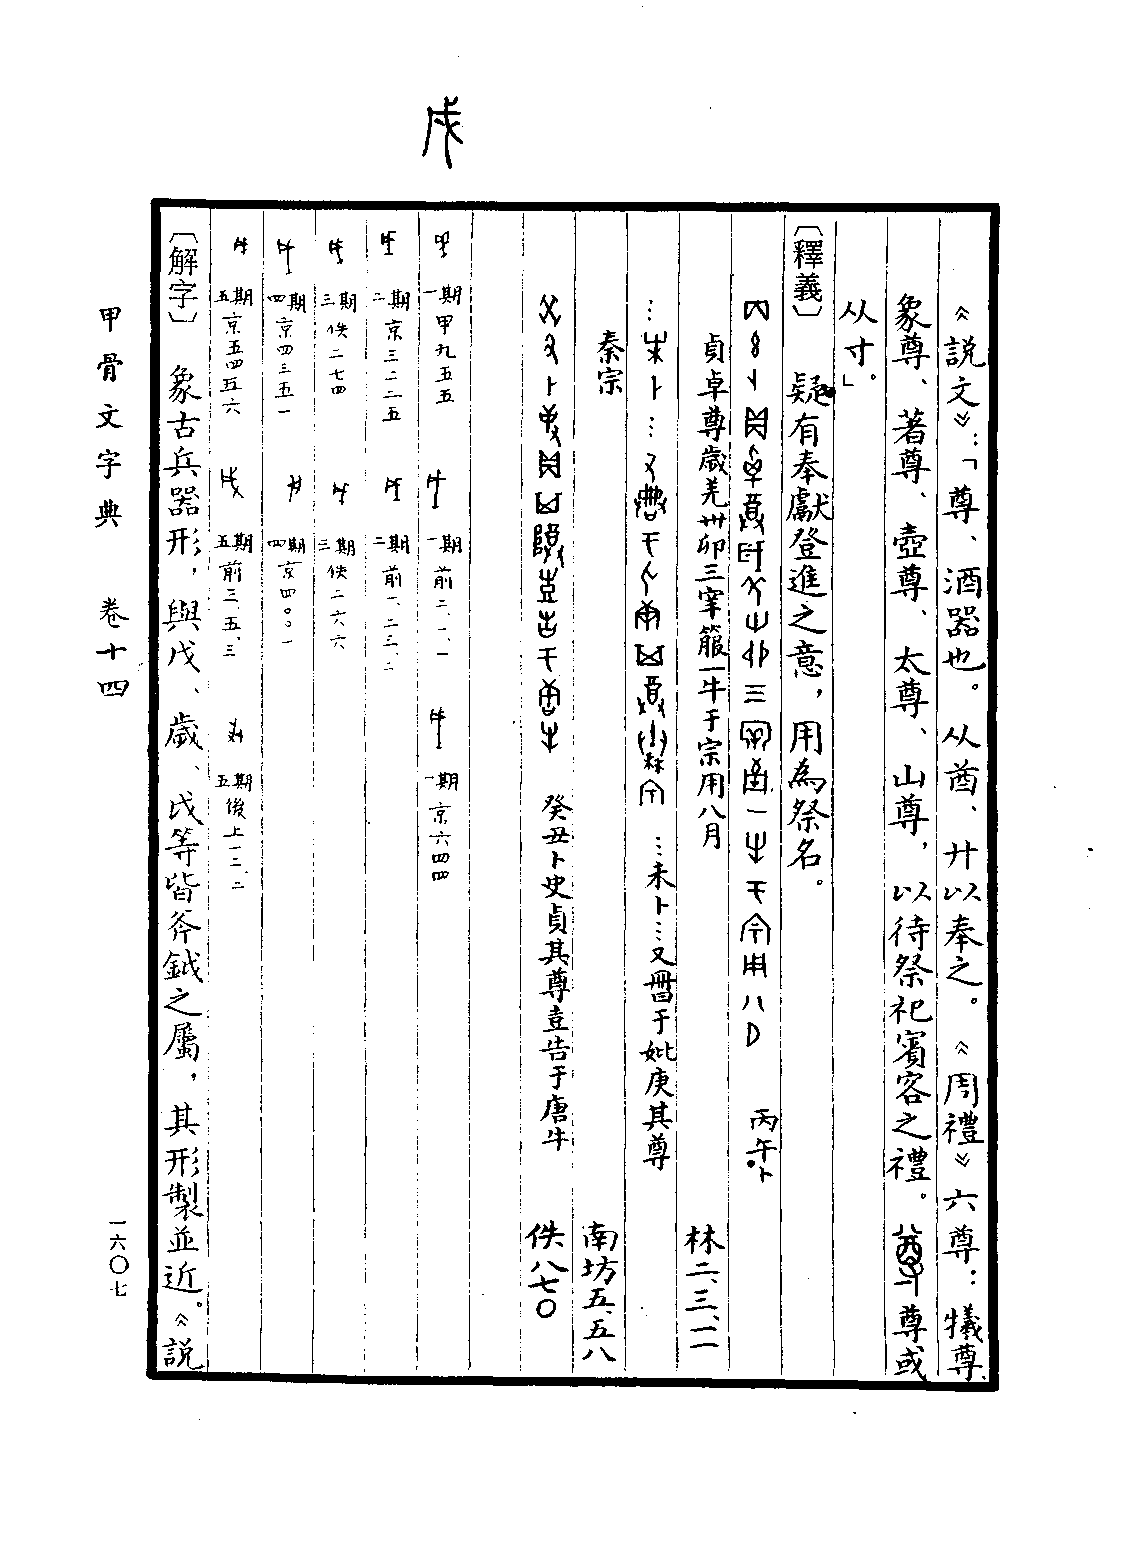 戌
《說文》：「尊、酒器也。从酋、廾以奉之。《周禮》六尊：犧尊、
象尊、著尊、壺尊、太尊、山尊，以待祭祀賓客之禮。尊或
从寸。」
〔釋義〕 疑有奉獻登進之意，用為祭名。
丙午卜
貞卓尊歲羌卅卯三窜箙一牛于宗用八月 林二、三、一一
…未卜…又𠕋于妣庚其尊
秦宗 南坊五、五八
癸丑卜史貞其尊壴告于唐牛 佚八七〇
一期甲九五五 一期前二、一、一 一期京六四四
二期京三二二五 二期前一、二三、二
三期佚二七四 三期佚二六六
四期京四三五一 四期京四〇〇一
五期京五四五六 五期前三、五、三 五期後上一二、二
〔解字〕 象古兵器形，與戊、歲、戉等皆斧鉞之屬，其形製並近。《說
甲骨文字典 卷十四 一六〇七